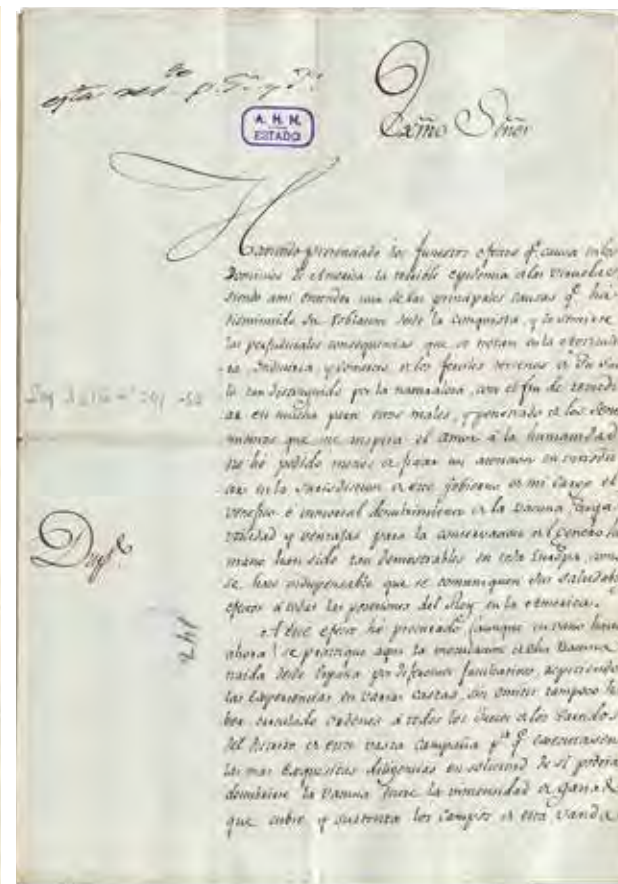 A. H. N.
ESTADO
Exmo Señor
Haviendo presenciado los funestos efectos q.e causa en los
Dominios de America la terrible epidemia de las viruelas
siendo a mi entender una de las principales causas q.e ha
disminuido su Poblacion desde la Conquista, y se
las perjudiciales consequencias que se notan en la
Industria, y comercio de los feraces terrenos de
lo tan distinguido por la naturaleza, con el fin de remedi
ar en mucha parte estos males, y penetrado de los senti
mientos que me inspira el amor á la humanidad
no hé podido menos de fixar mi atencion en introdu
cir en la Jurisdiccion de este gobierno de mi cargo el
benefico é inmortal descubrimiento de la Vacuna
utilidad y ventajas para la conservacion del genero hu
mano han sido tan demostrables en toda Europa, como
se hace indispensable que se comuniquen sus saludables
efectos á todas las posesiones del Rey en la America.
A este efecto hé procurado (aunque en vano hasta
ahora) se practique aqui la inoculacion de dha Vacuna
traida desde España por diferentes facultativos, repitiendo
las experiencias en varias castas, sin omitir tampoco ha
ber circulado ordenes á todos los Jueces de los Partidos
del Distrito de esta vasta Campaña p.a q.e executasen
las mas exquisitas diligencias en solicitud de si podria
descubrirse la Vacuna entre la inmensidad de ganado
que cubre y sustentan los campos de esta vanda
Dup.do
247